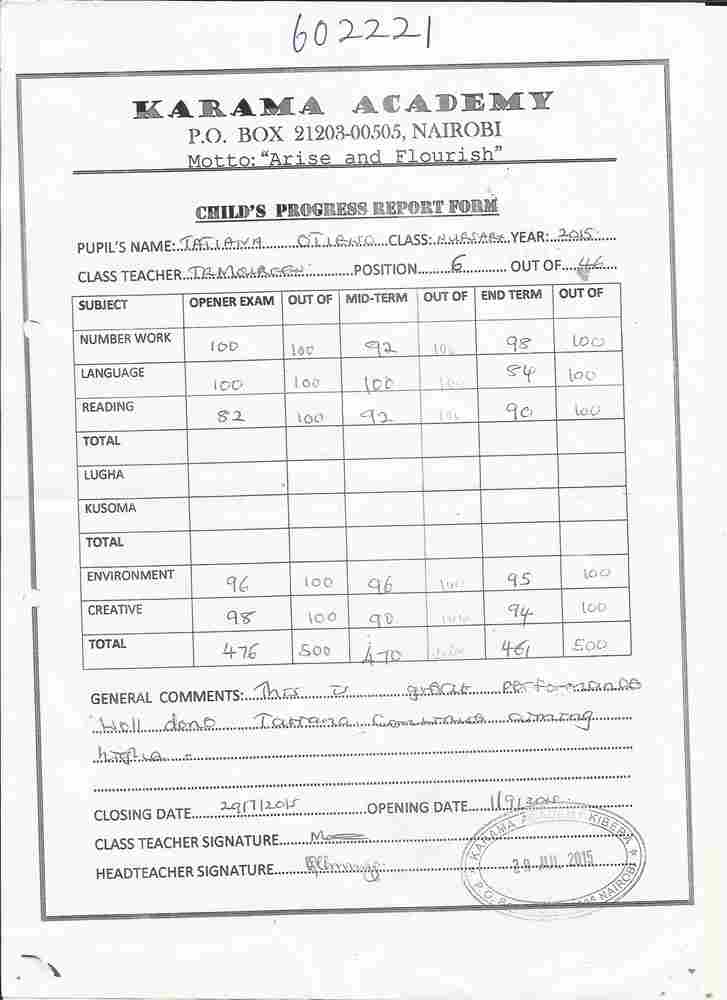 602221
KARAMA ACADEMY
P.O. BOX 21203-00505, NAIROBI
Motto: “Arise and Flourish”
CHILD'S PROGRESS REPORT FORM
PUPIL'S NAME: TATIANA OTIENO CLASS: NURSARY YEAR: 2015
CLASS TEACHER TR MAUREEN POSITION 6 OUT OF 46
SUBJECT OPENER EXAM OUT OF MID-TERM OUT OF END TERM OUT OF
NUMBER WORK 100 100 92 100 98 100
LANGUAGE 100 100 100 100 84 100
READING 82 100 92 100 90 100
TOTAL
LUGHA
KUSOMA
TOTAL
ENVIRONMENT 96 100 96 100 95 100
CREATIVE 98 100 90 100 94 100
TOTAL 476 500 470 461 500
GENERAL COMMENTS: This is great performance
Well done Tatiana. Continue aiming
higher.
CLOSING DATE 29/7/2015 OPENING DATE 1/9/2015
CLASS TEACHER SIGNATURE
HEADTEACHER SIGNATURE
KARAMA ACADEMY KIBERA
29 JUL 2015
P.O. B NAIROBI